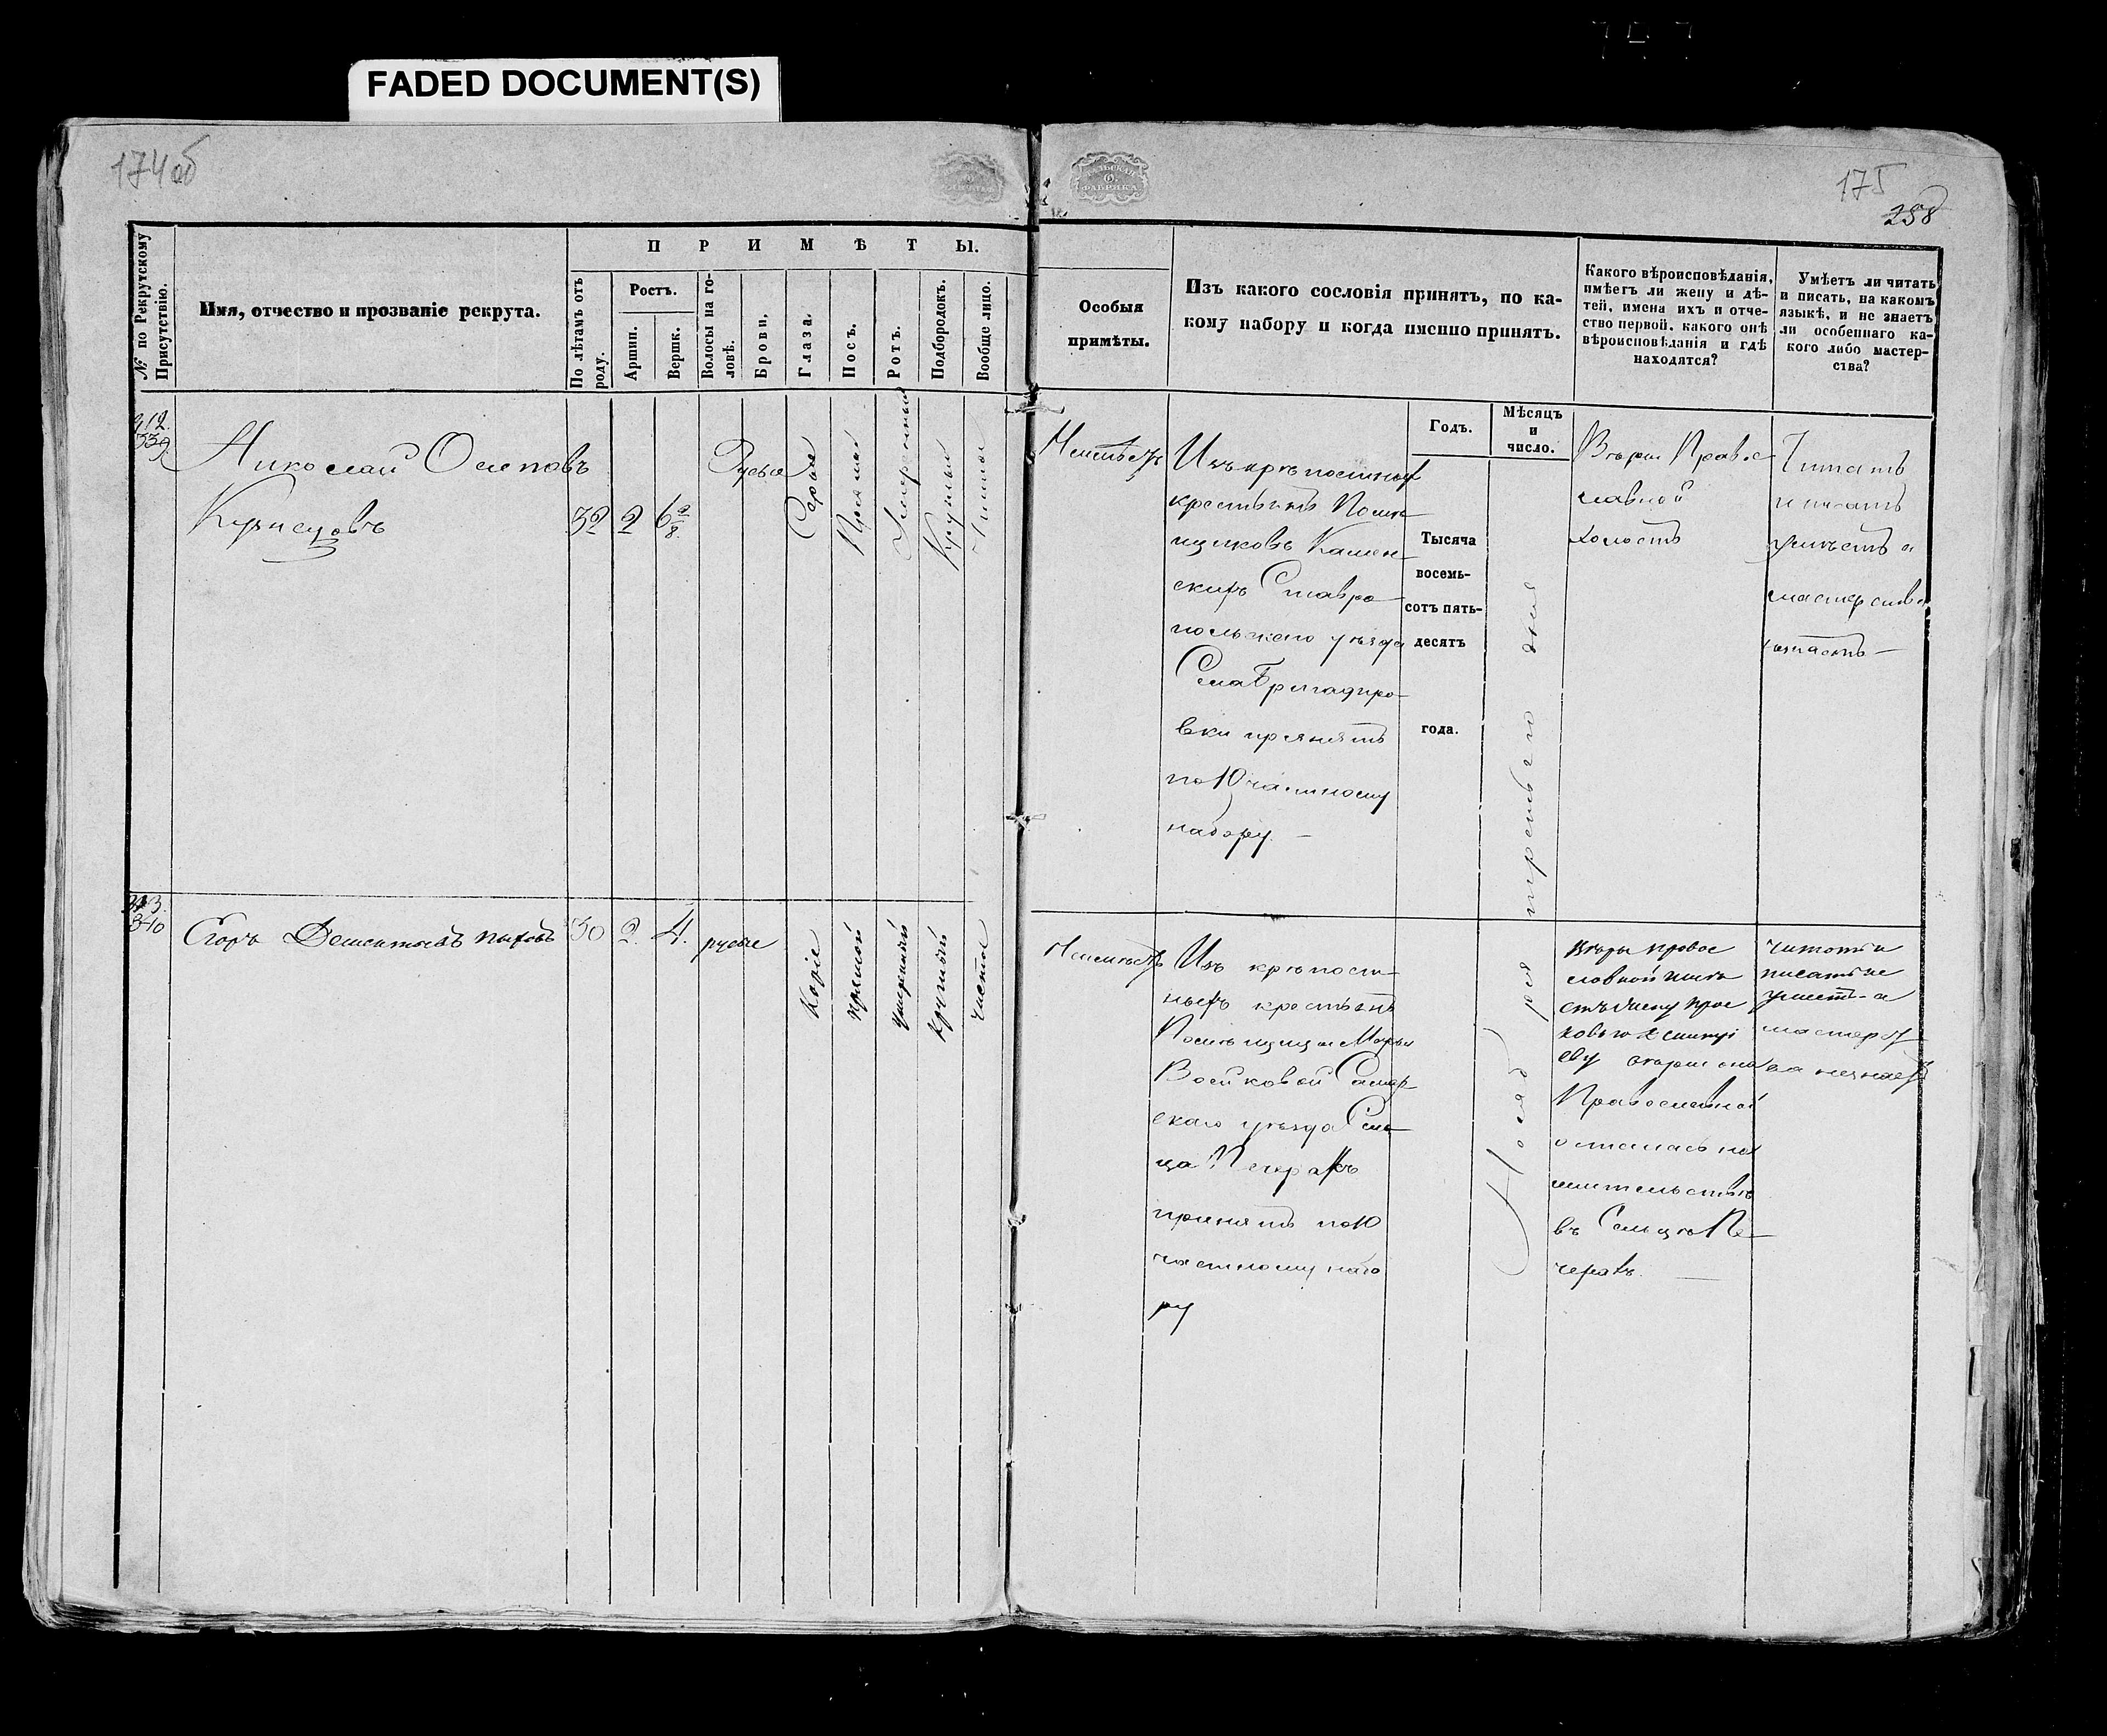 FADED DOCUMENT(S)
174об
175
258
№ по Рекрутскому Присутствію.
Имя, отчество и прозваніе рекрута.
ПРИМѢТЫ.
По лѣтамъ отъ роду.
Ростъ.
Аршин.
Вершк.
Волосы на головѣ.
Брови.
Глаза.
Носъ.
Ротъ.
Подбородокъ.
Вообще лицо.
Особыя
примѣты.
Изъ какого сословія принятъ, по ка-
кому набору и когда именно принятъ.
Какого вѣроисповѣданія,
имѣетъ ли жену и дѣ-
тей, имена ихъ и отче-
ство первой, какого онѣ
вѣроисповѣданія и гдѣ
находятся?
Умѣетъ ли читать
и писать, на какомъ
языкѣ, и не знаетъ
ли особеннаго ка-
кого либо мастер-
ства?
Годъ.
Мѣсяцъ
и
число.
339
Николай Осиповъ
Кузнецовъ
32
2
6 2/8
Русые
Серые
Прямой
Умеренный
Круглый
Чистое
Неимѣетъ
Изъ крѣпостныхъ
крестьянъ Помѣ-
щиковъ Камен-
скихъ Ставро-
польскаго уѣзда
Села Бригадиро-
вки принятъ
по 10 частному
набору. —
Тысяча
восемь-
сотъ пять-
десятъ
года.
Ноября третьяго дня
Вѣры Православной
холостъ
Читать
и писать
умѣетъ а
мастерства
340
Егоръ Дементьевъ
30
2.
4.
русые
Каріе
прямой
умеренный
круглый
чистое
Неимѣетъ
Изъ крѣпост-
ныхъ крестьянъ
Помѣщицы Марьи
Воейковой Самар-
скаго уѣзда Сель-
ца
принятъ по 10
частному набо
ру
Вѣры право
славной имѣ
етъ жену Прас
ковью
еву вѣры она
Православной
осталась на
жительствѣ
въ Сельцѣ Пе-
черахъ. —
читать и
писать не
умѣетъ а
мастерст
ва незнаетъ